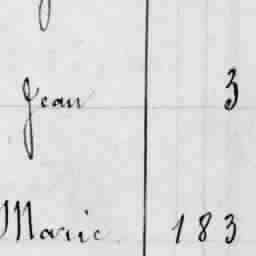 Jean 3
Marie 183